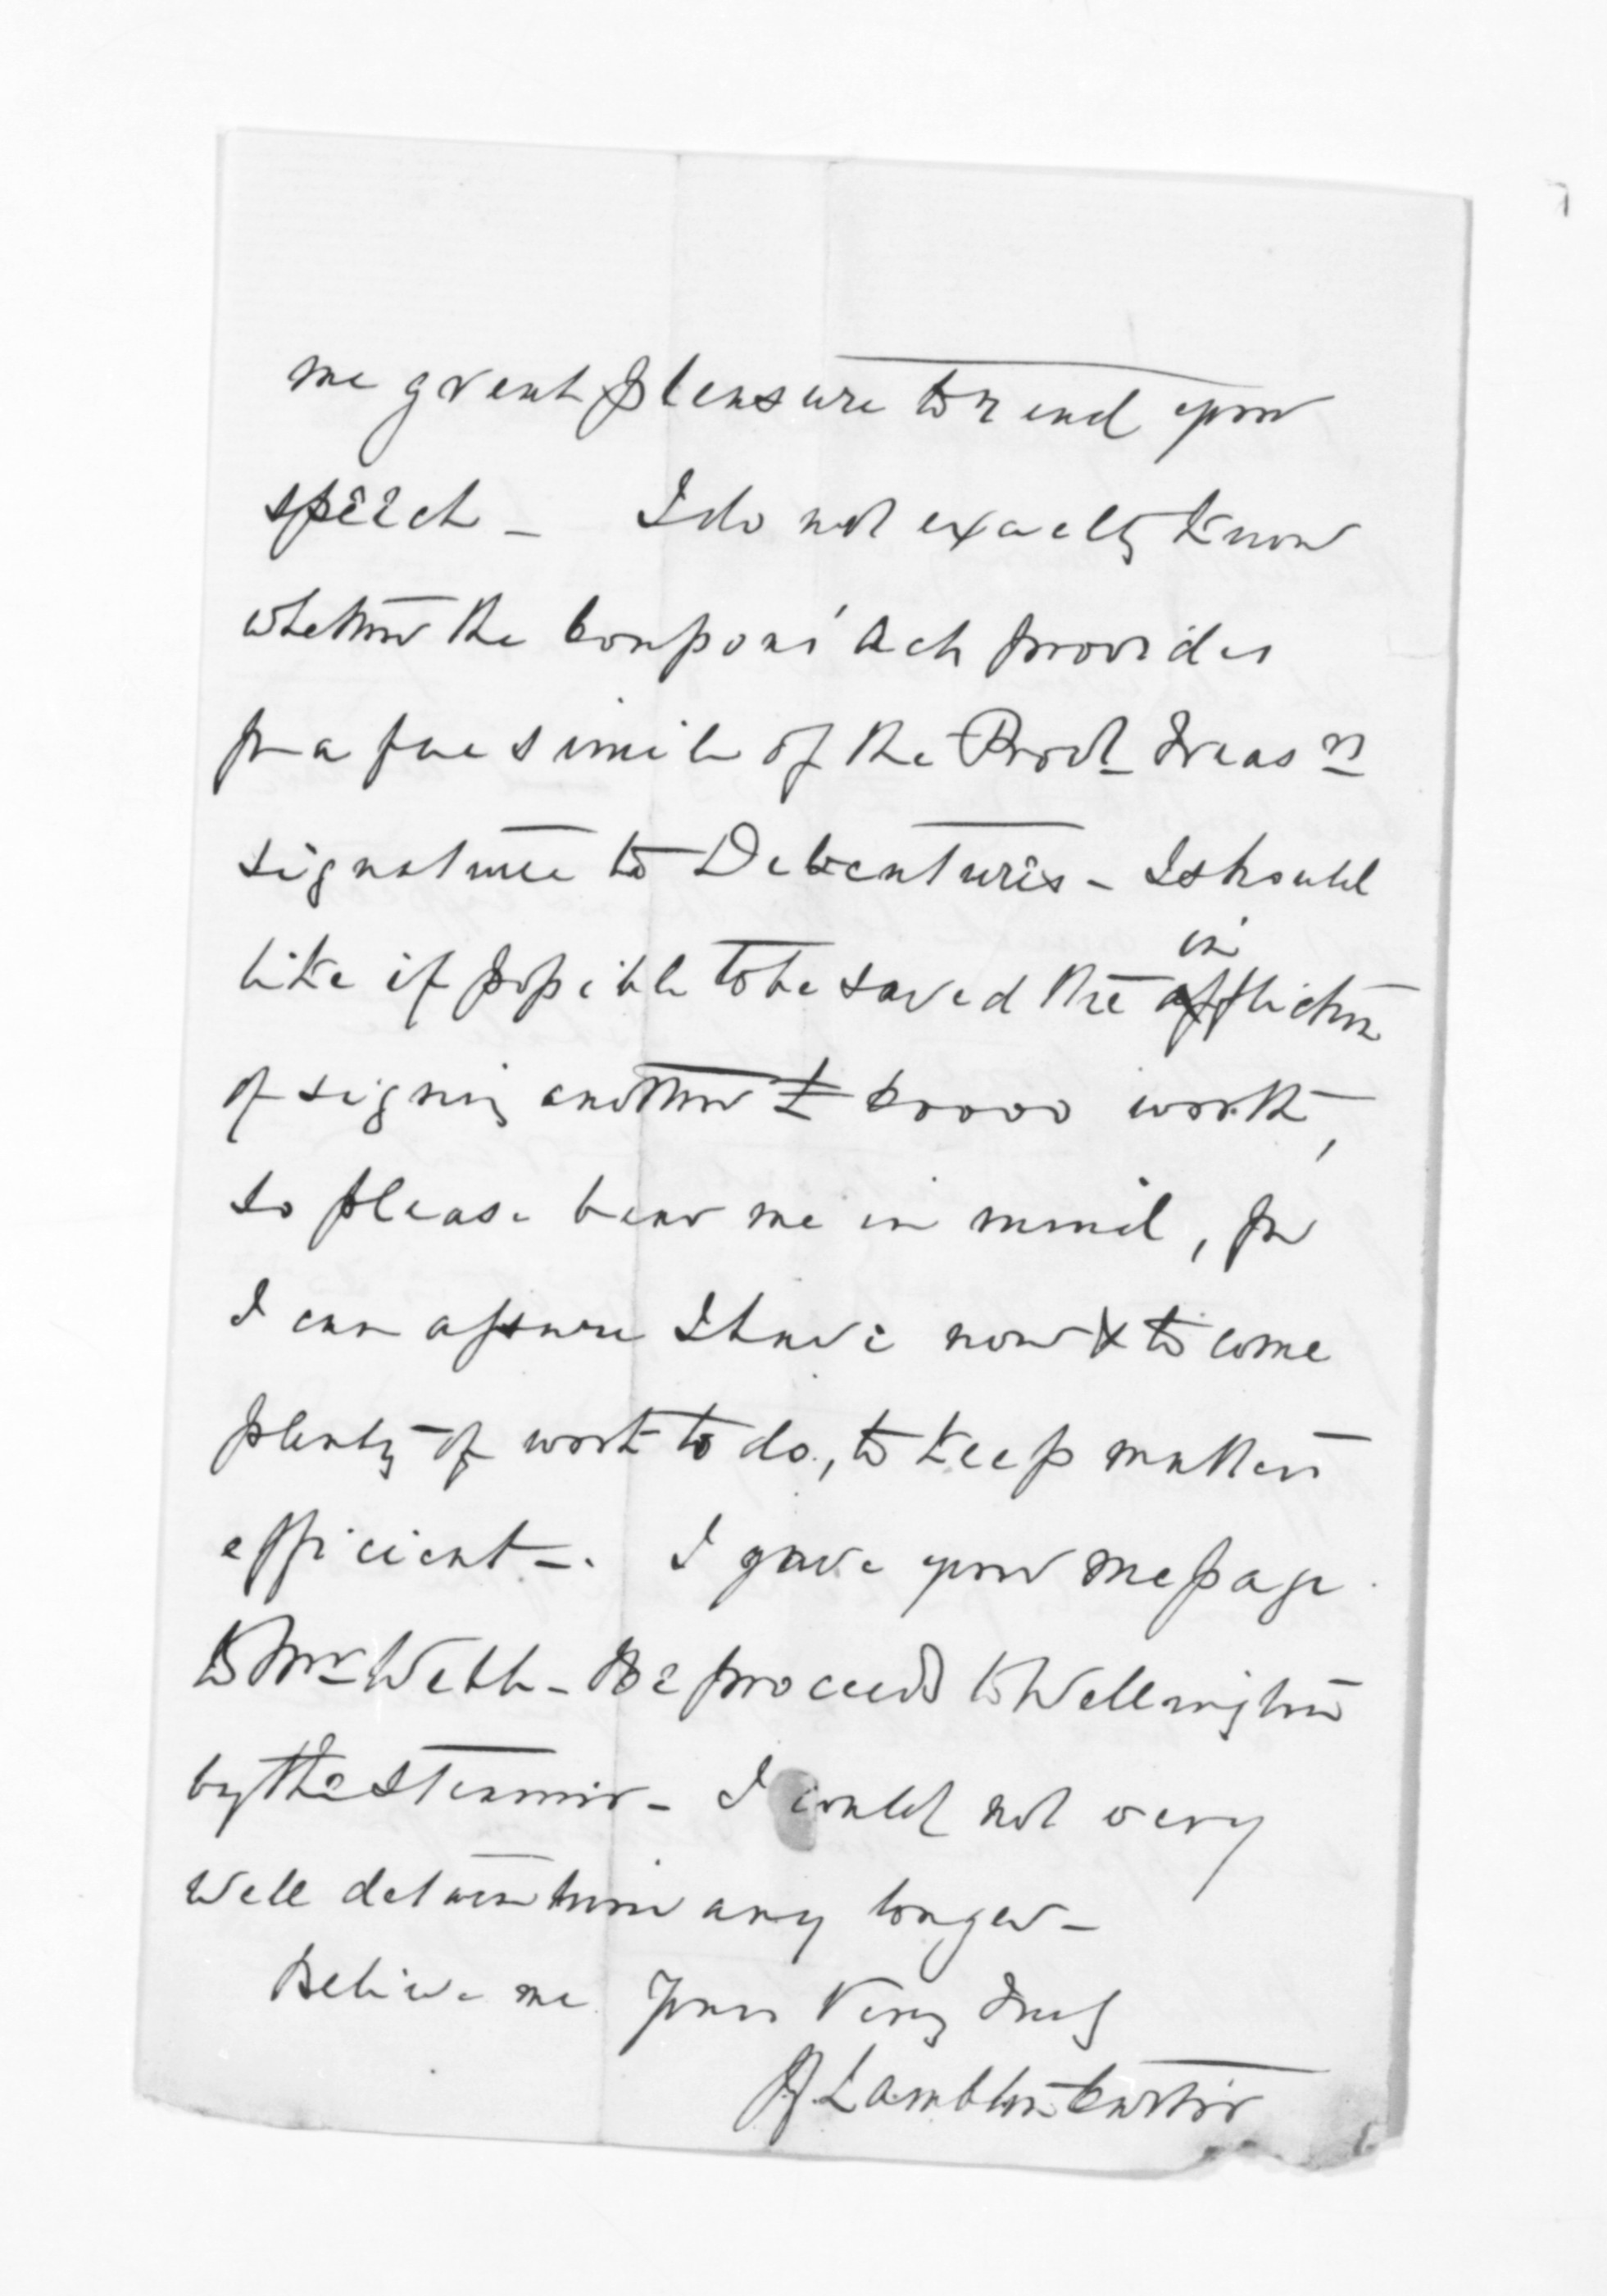 me great pleasure to read your
speech - I do not exactly know
whether the Coupons' Act provides
for a facsimile of the Provl Treasrs
signature to Debentures - I should
like if possible to be saved the infliction
of signing another £ worth,
so please bear me in mind, for
I can assure I have now & to come
plenty of work to do, to keep matters
efficient -. I gave your message
to Mr Webb - He proceeds to Wellington
by the Steamer - I could not very
well detain him any longer -
Believe me Yours Very Truly
Lambton Carter